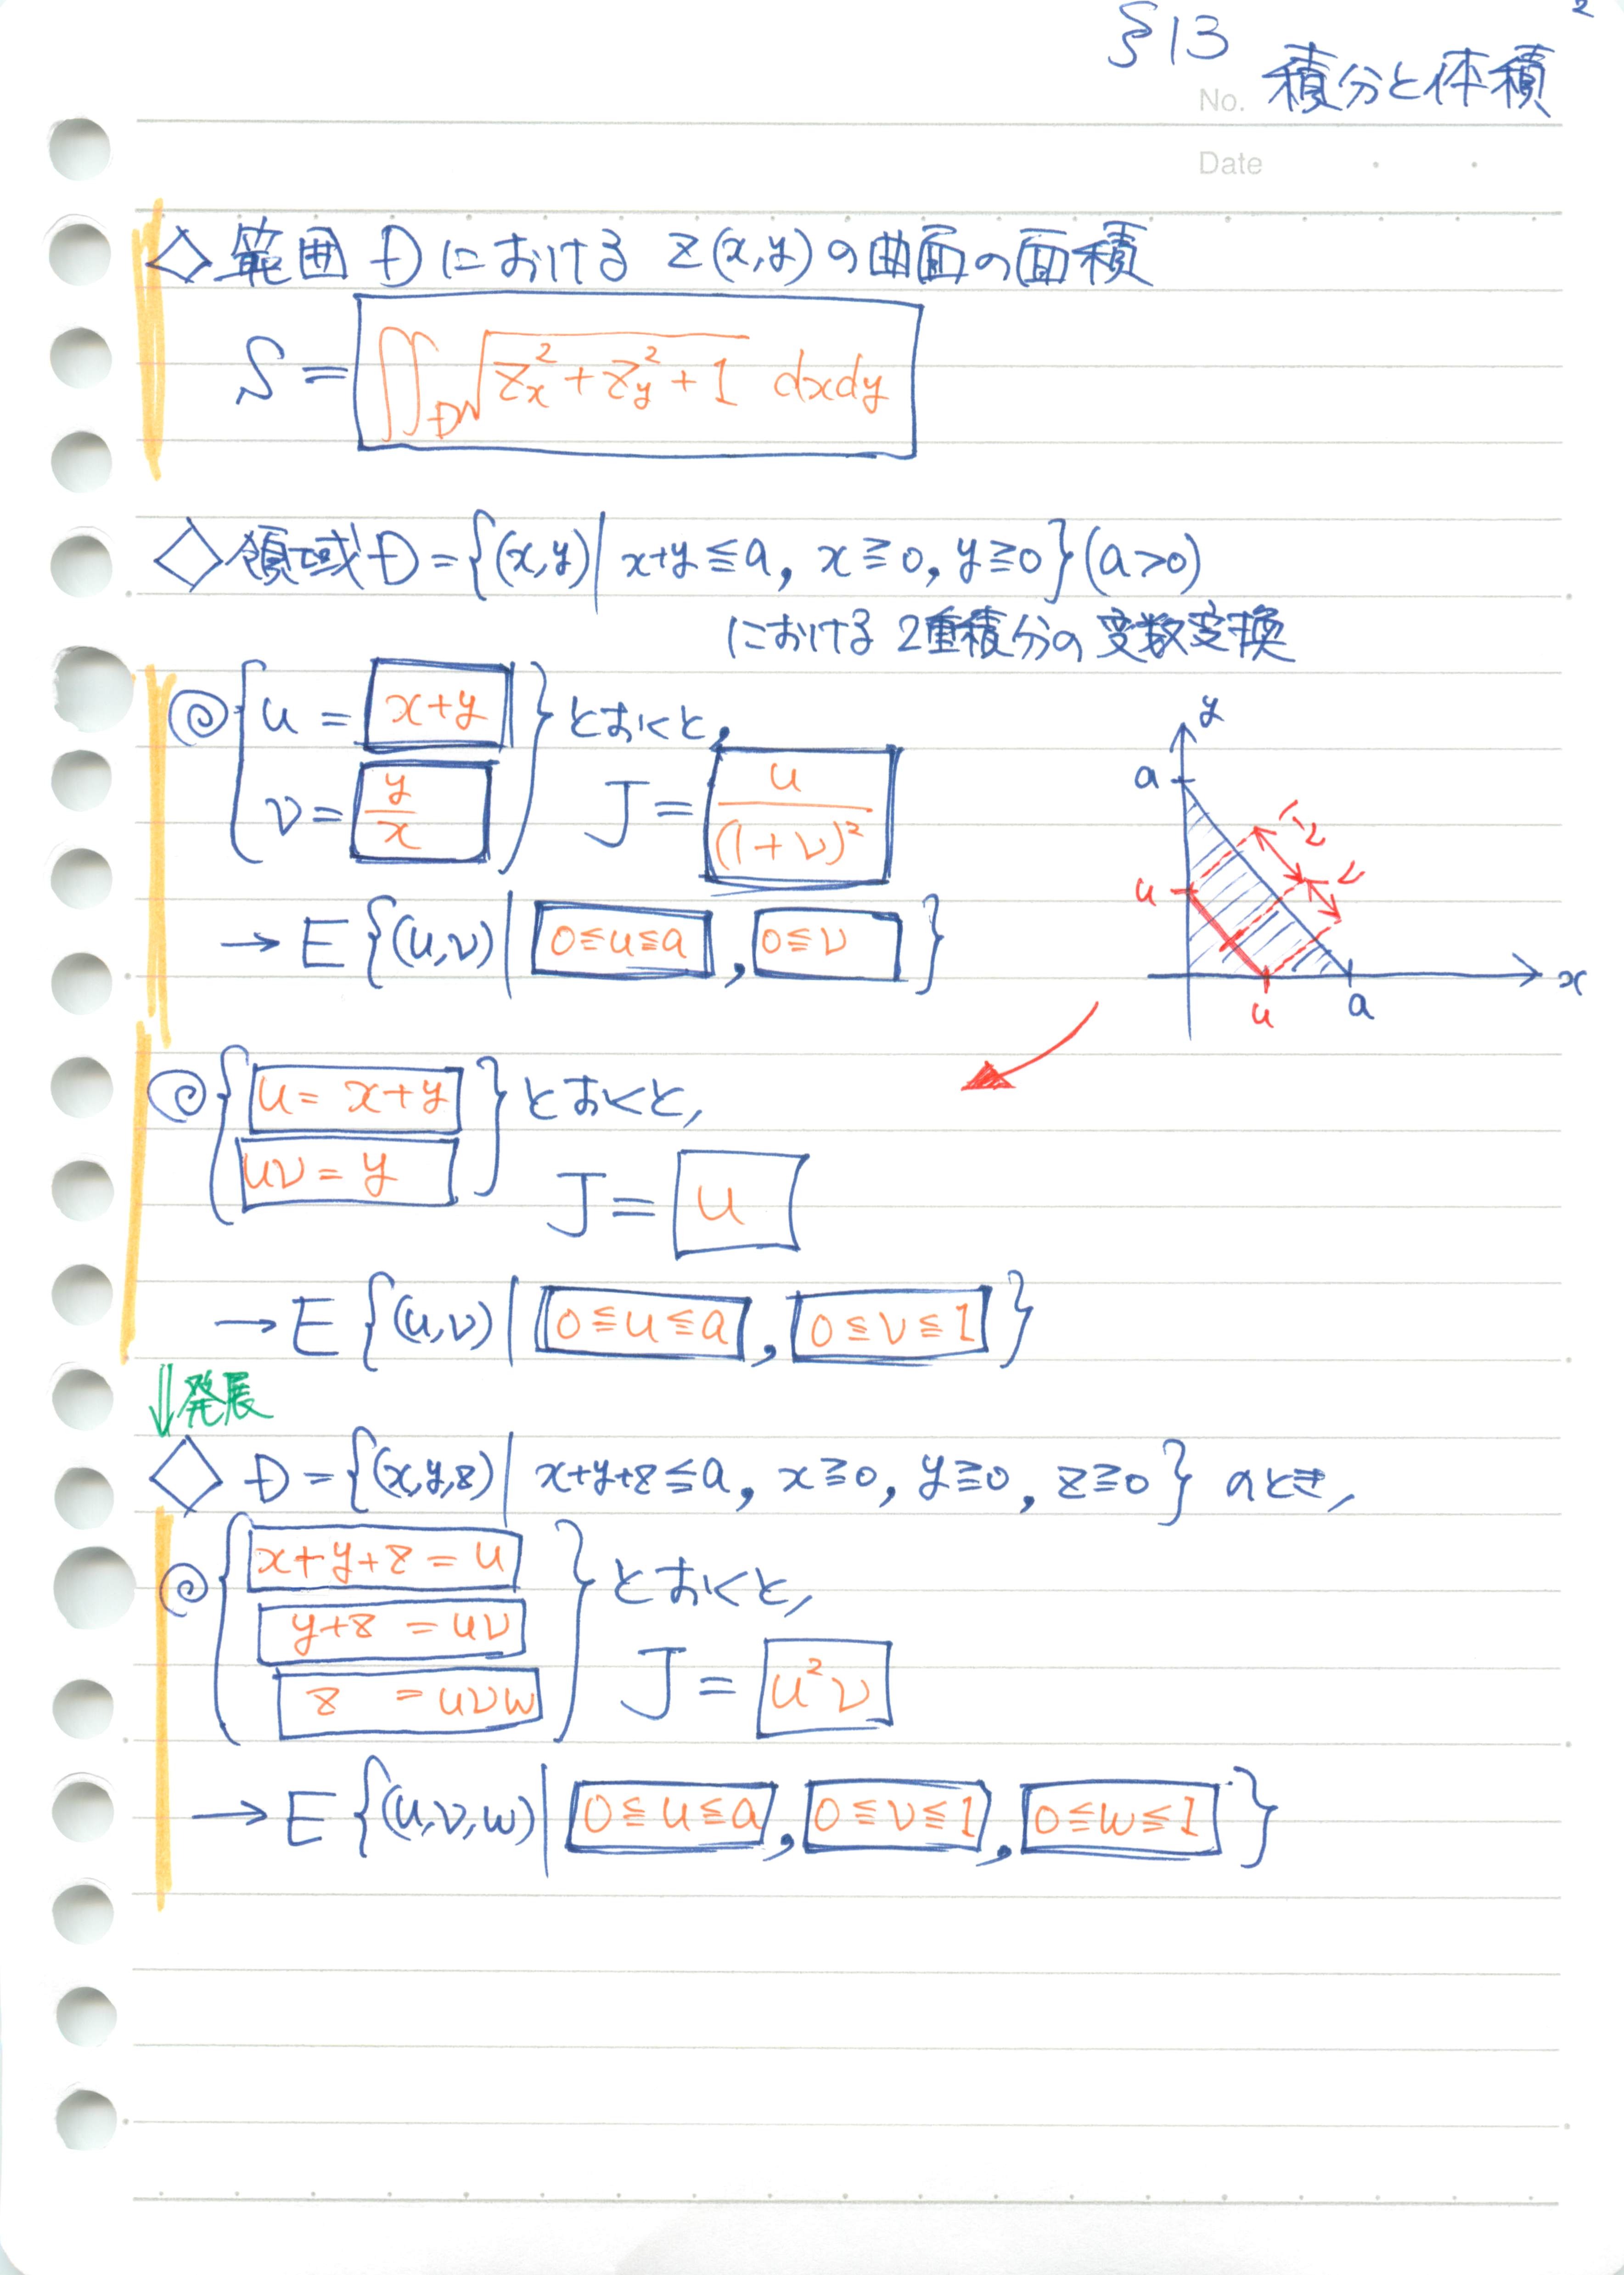 §13 積分と体積 2
No.
Date
◇範囲 D における z(x,y) の曲面の面積
S = ∬_D √(z_x² + z_y² + 1) dxdy
◇領域 D = {(x,y) | x+y ≦ a, x ≧ 0, y ≧ 0} (a>0)
における2重積分の変数変換
◎ { u = x+y
v = y/x } とおくと,
J = u/(1+v)²
→ E {(u,v) | 0≦u≦a, 0≦v }
y
a
u
u
a
x
v
◎ { u = x+y
uv = y } とおくと,
J = u
→ E {(u,v) | 0≦u≦a, 0≦v≦1}
↓発展
◇ D = {(x,y,z) | x+y+z ≦ a, x≧0, y≧0, z≧0} のとき,
◎ { x+y+z = u
y+z = uv
z = uvw } とおくと,
J = u²v
→ E {(u,v,w) | 0≦u≦a, 0≦v≦1, 0≦w≦1 }